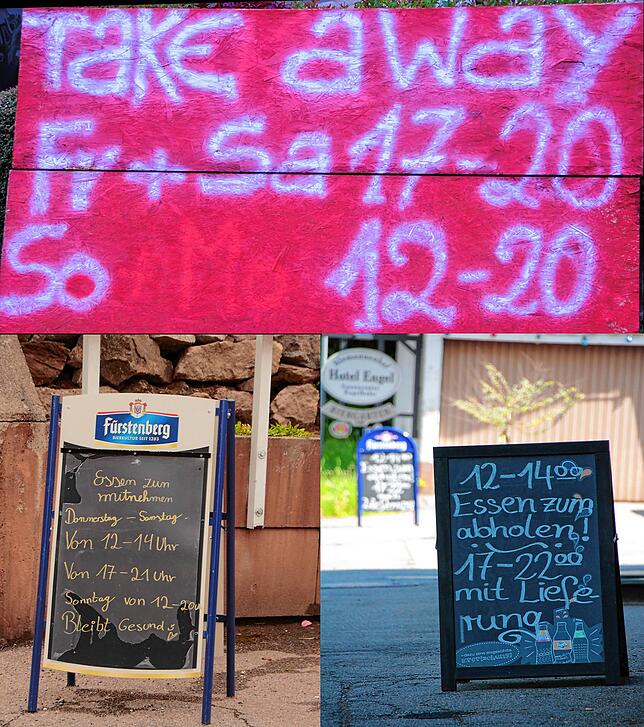 Take away
Fr + Sa 17-20
So 12-20
Fürstenberg
BIERKULTUR SEIT 1283
Essen zum
mitnehmen
Donnerstag – Samstag
Von 12–14 Uhr
Von 17–21 Uhr
Sonntag von 12–20u
Bleibt Gesund
Hotel Engel
BIERGARTEN
Fürstenberg
12-14⁰⁰
Essen zum
abholen!
17-22⁰⁰
mit Liefe-
rung